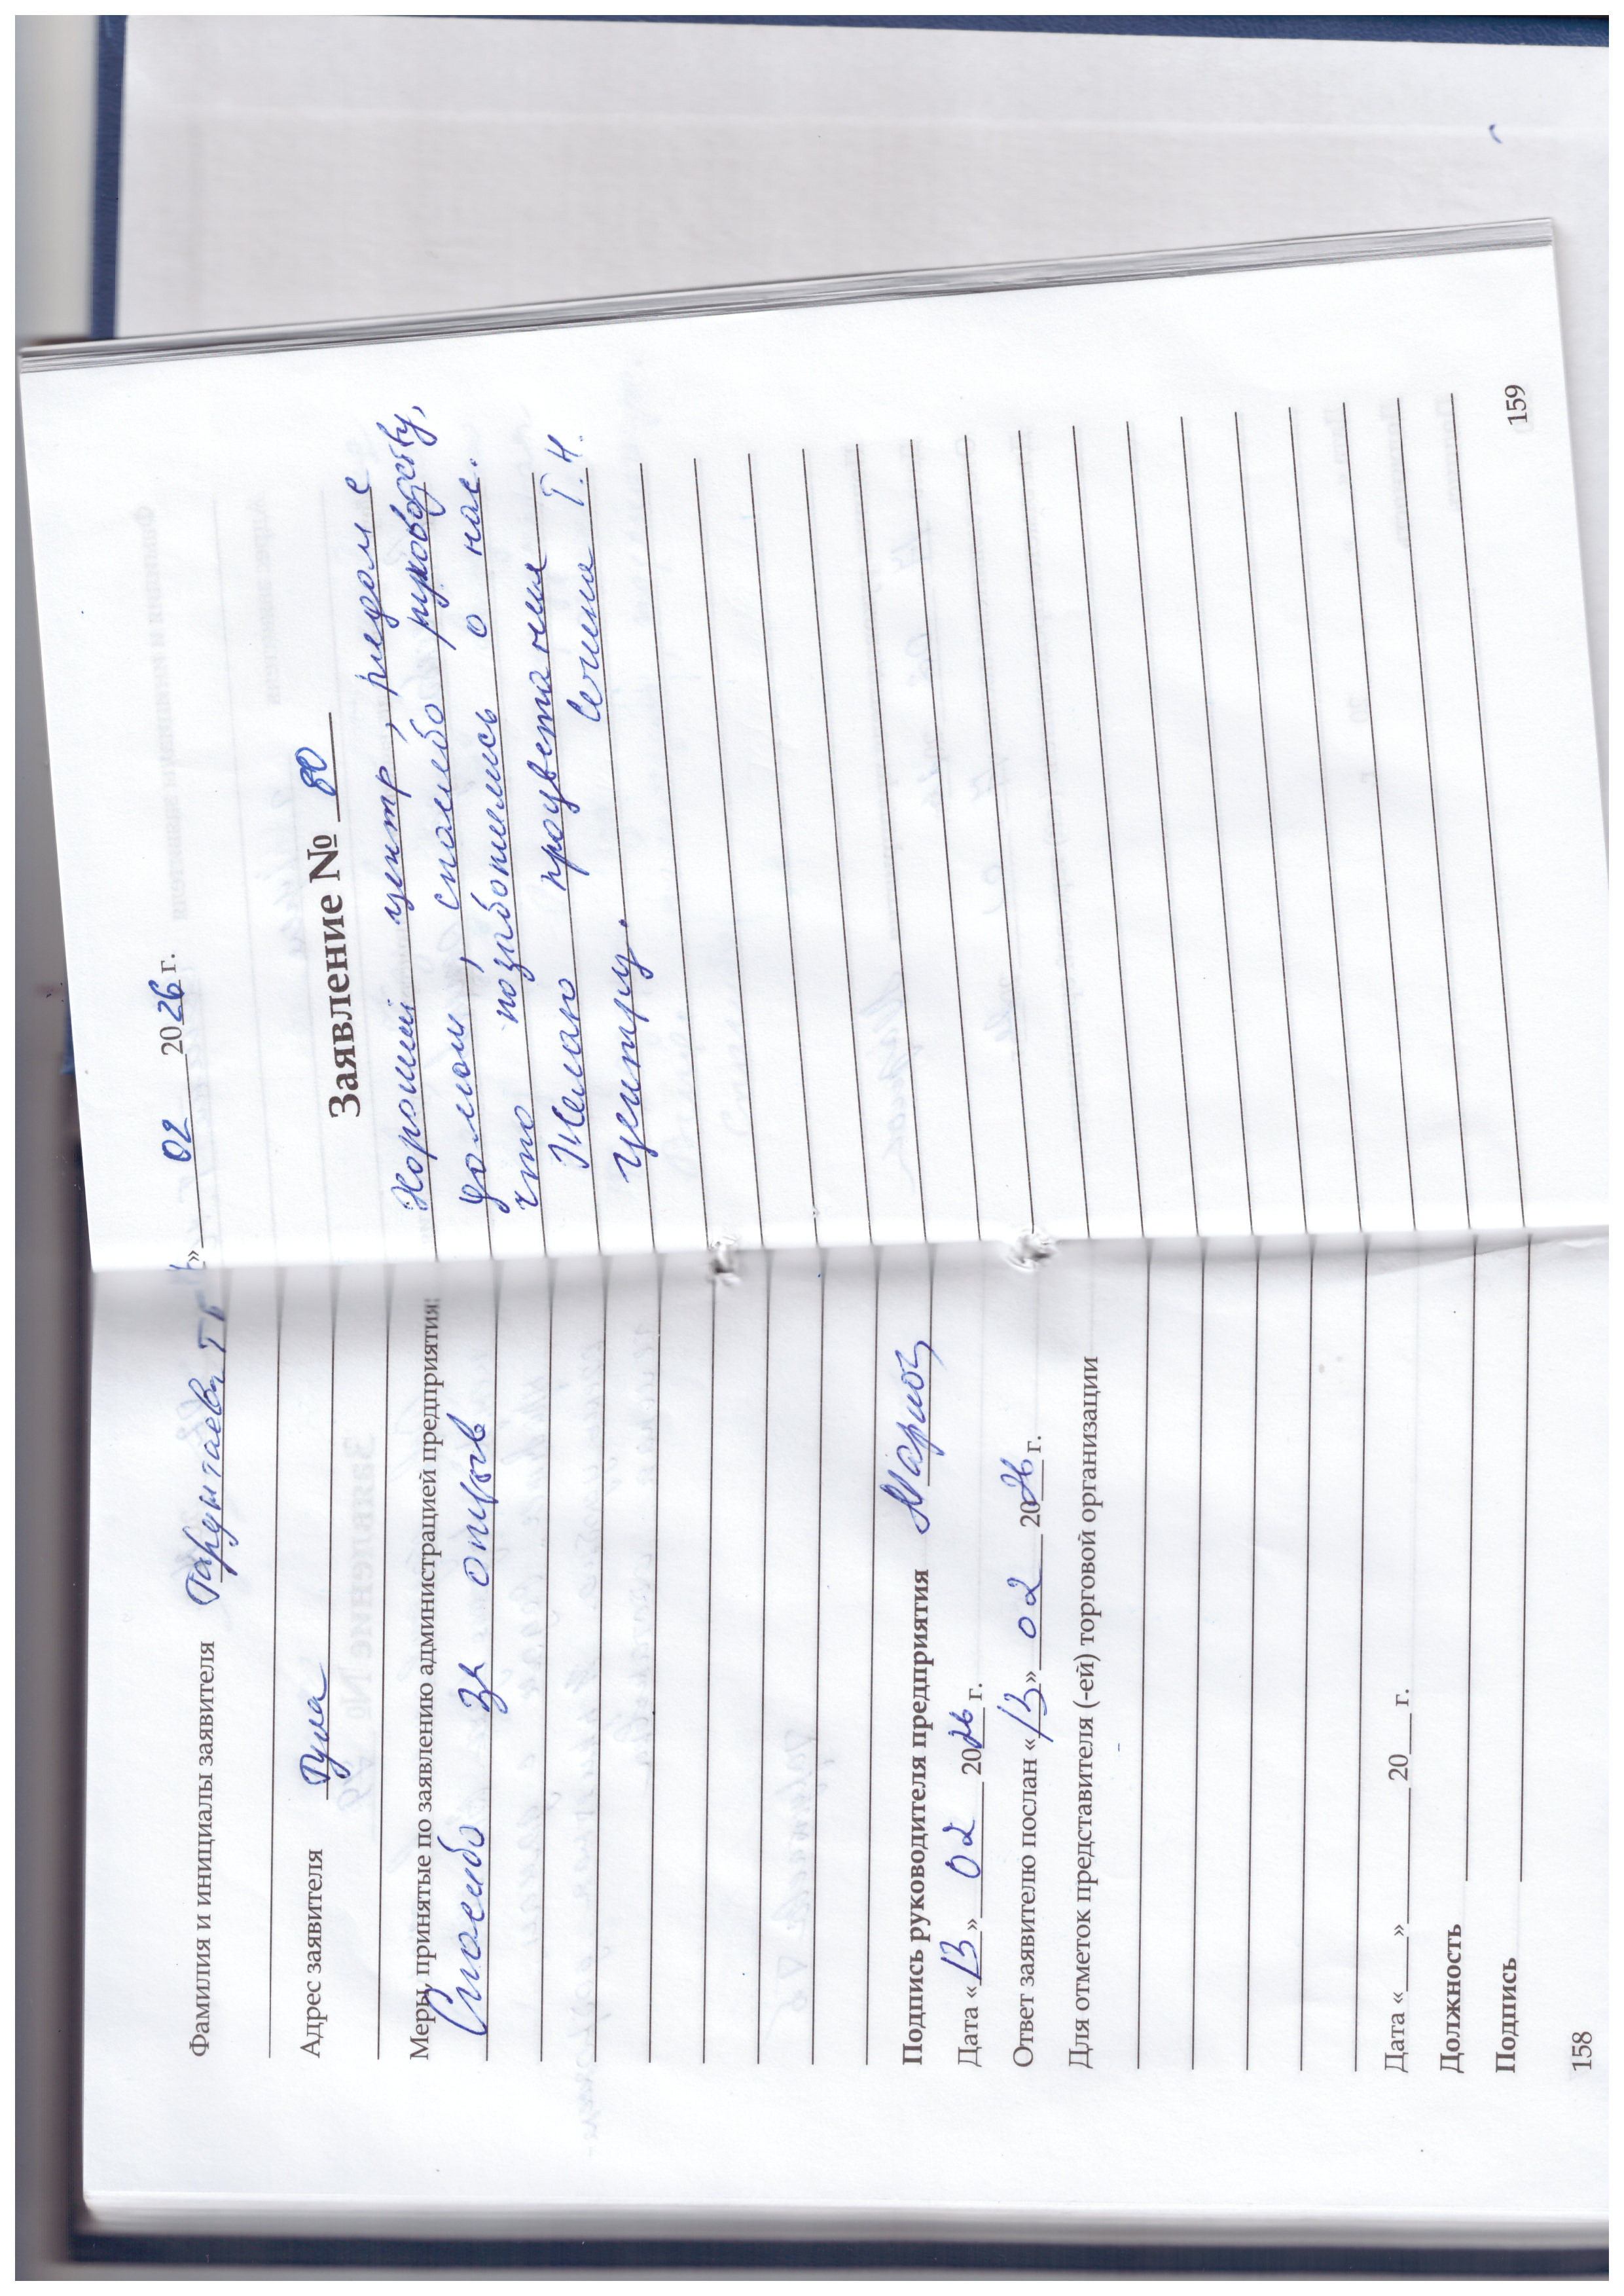 Фамилия и инициалы заявителя
Адрес заявителя Тула
Меры, принятые по заявлению администрацией предприятия:
Спасибо за отзыв
Подпись руководителя предприятия
Дата «13» 02 2026 г.
Ответ заявителю послан «13» 02 2026 г.
Для отметок представителя (-ей) торговой организации
Дата «___» ______ 20___ г.
Должность
Подпись
158
» 02 2026 г.
Заявление № 80
Хороший центр, рядом с
домом, спасибо руководству,
что позаботились о нас.
Желаю процветания
центру. Т.Н.
159